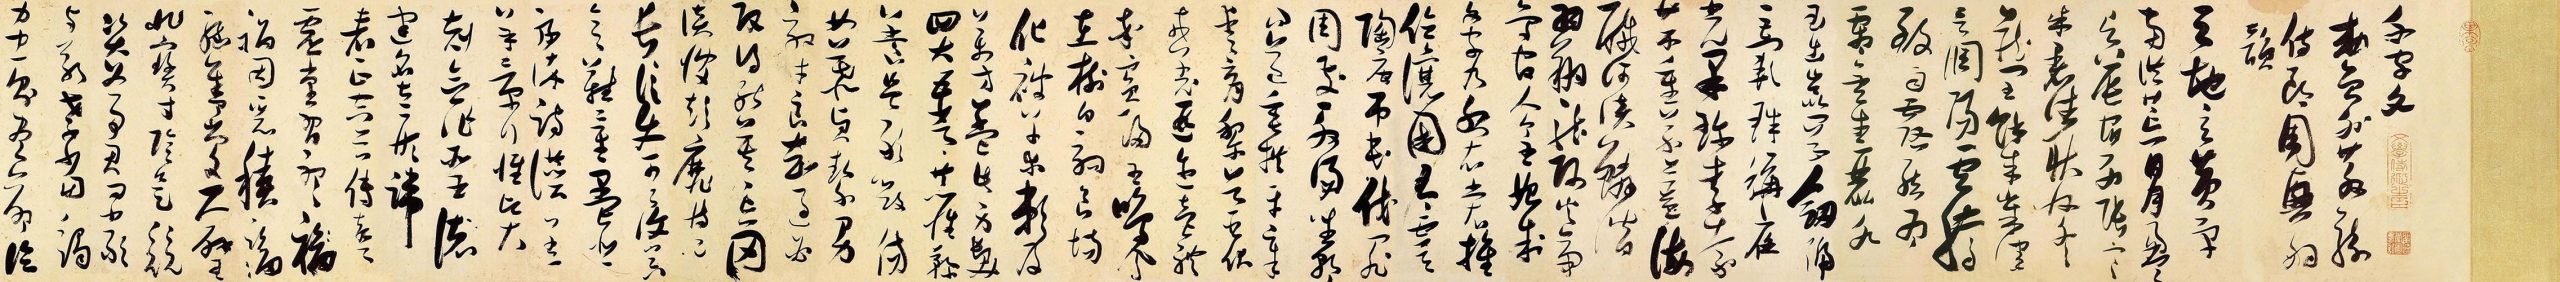 千字文
敕員外散騎
侍郎周興嗣
韻
天地玄黃宇
宙洪荒日月盈
昃辰宿列張寒
來暑往秋收冬
藏閏餘成歲律
呂調陽雲騰
致雨露結為
霜金生麗水
玉出崑岡劍號
巨闕珠稱夜
光果珍李柰
菜重芥薑海
鹹河淡鱗潛
羽翔龍師火帝
鳥官人皇始制
文字乃服衣裳推
位讓國有虞
陶唐弔民伐罪
周發殷湯坐朝
問道垂拱平章
愛育黎首臣伏
戎羌遐邇壹體
率賓歸王鳴鳳
在樹白駒食場
化被草木賴及
萬方蓋此身髮
四大五常恭惟鞠
養豈敢毀傷
女慕貞絜男
效才良知過必
改得能莫忘罔
談彼短靡恃己
長信使可覆器
欲難量墨悲
絲染詩讚羔
羊景行維賢
剋念作聖德
建名立形端
表正空谷傳聲
虛堂習聽
禍因惡積福
緣善慶尺璧
非寶寸陰是競
資父事君曰嚴
與敬孝當竭
力忠則盡命臨